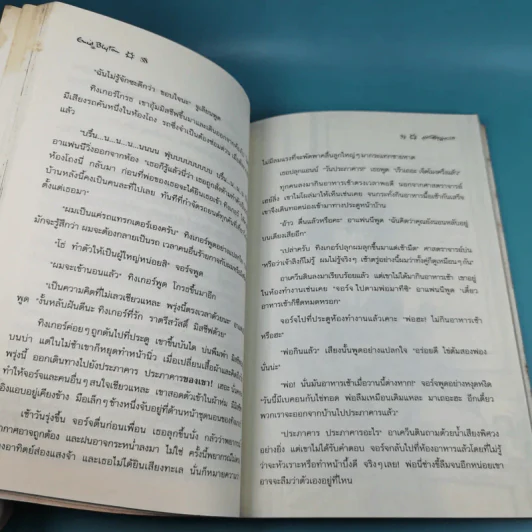 Enid Blyton
"ฉันไม่รู้จักซะดีกว่า ขอบใจนะ" จูเลียนพูด
ทิงเกอร์โกรธ เขาอุ้มมิสชีฟขึ้นมาและเดินออก
มีเสียงรถคันหนึ่งในห้องโถง รถซึ่งจำเป็นต้องซ่อมด่วน
แล้ว
"บรื๋น...น...น...น...นนนน ฟุ่บบบบบบบบบ
อาแฟนนีวิ่งออกจากห้อง "เธอก็รู้แล้วนี่ว่า เธอถูกสั่ง
ห้องโถงนี่ กลับมา ก่อนที่พ่อของเธอจะได้ยินเธอเข้า ทิงเกอร์
บ้านหลังนี้คงเป็นคนละที่ไปเลย ทันทีที่กำจัดรถยนต์ทุกคัน
ตั้งแต่เธอมา"
"ผมเป็นแค่รถแทรกเตอร์เองครับ" ทิงเกอร์พูดอย่าง
มักจะรู้สึกว่า ผมจะต้องกลายเป็นรถ เวลาคนอื่นร้ายกาจกับผม
"โธ่ ทำตัวให้เป็นผู้ใหญ่หน่อยสิ" จอร์จพูด
"ผมจะเข้านอนแล้ว" ทิงเกอร์พูด โกรธขึ้นมาอีก
"เป็นความคิดที่ไม่เลวเชียวแหละ พรุ่งนี้ตรงเวลาด้วยนะ"
พูด "งั้นหลับฝันดีนะ ทิงเกอร์ที่รัก ราตรีสวัสดิ์ มิสชีฟด้วย"
ทิงเกอร์ค่อยๆ ถูกดันไปที่ประตู เขาขึ้นบันได บ่นพึมพำ มิสชีฟ
บนบ่า แต่ในไม่ช้าเขาก็หยุดทำหน้านิ่ว เมื่อเปลี่ยนเสื้อผ้า
พรุ่งนี้ ออกเดินทางไปยังประภาคาร ประภาคารของเขา! เธอ
ทำให้จอร์จและคนอื่นๆ สนใจเชียวแหละ เขาสอดตัวเข้าในผ้าห่ม มิสชีฟ
องแอบอยู่เคียงข้าง มือเล็กๆ ข้างหนึ่งจับอยู่ที่ด้านหน้าชุดนอนของ
เช้าวันรุ่งขึ้น จอร์จตื่นก่อนเพื่อน เธอลุกขึ้นนั่ง กลัวว่าพยากรณ์
กาศอาจถูกต้อง และฝนอาจกระหน่ำลงมา ไม่ใช่ ครั้งนี้พยากรณ์
งอาทิตย์ส่องแสงจ้า และเธอไม่ได้ยินเสียงทะเล นั่นก็หมายความ
ไม่มีลมแรงที่จะพัดพาคลื่นลูกใหญ่ๆ มากระแทกชายหาด
เธอปลุกแอนน์ "วันประภาคาร" เธอพูด "เร็วเถอะ เช้าแล้ว"
ทุกคนลงมากินอาหารเช้าตรงเวลาพอดี นอกจากศาสตราจารย์
เฮย์ลิ่ง เขาไม่โผล่มาให้เห็นเช่นเคย จนกระทั่งอาหารมื้อเช้ากินเสร็จ
เขาจึงเดินทอดน่องเข้ามาทางประตูหน้าบ้าน
"อ้าว ตื่นแล้วหรือคะ" อาแฟนนีพูด "ฉันคิดว่าคุณยังนอนหลับอยู่
บนเตียงเสียอีก"
"เปล่าครับ ทิงเกอร์ปลุกผมลุกขึ้นมาแต่เช้ามืด" ศาสตราจารย์บ่น
อาควีนตินลงมาเรียบร้อยแล้ว แต่เขาไม่ได้มากินอาหารเช้า เขาอยู่
ในห้องทำงานเช่นเคย "จอร์จ ไปตามพ่อมาทีซิ" อาแฟนนีพูด "เดี๋ยว
อาหารเช้าก็ชืดหมดหรอก"
จอร์จไปที่ประตูห้องทำงานแล้วเคาะ "พ่อฮะ! ไม่กินอาหารเช้า
หรือฮะ"
"พ่อกินแล้ว" เสียงนั้นพูดอย่างแปลกใจ "อร่อยดี ไข่ต้มสองฟอง
นั่นน่ะ"
"พ่อ! นั่นมันอาหารเช้าเมื่อวานนี้ต่างหาก!" จอร์จพูดอย่างหงุดหงิด
"วันนี้มีเบคอนกับไข่ทอด พ่อลืมเหมือนเดิมแหละ มาเถอะฮะ อีกเดี๋ยว
พวกเราจะออกจากบ้านไปประภาคารแล้ว"
"ประภาคาร ประภาคารอะไร" อาควีนตินถามด้วยน้ำเสียงพิศวง
อย่างยิ่ง แต่เขาไม่ได้รับคำตอบ จอร์จกลับไปที่ห้องอาหารแล้วโดยที่ไม่รู้
ว่าจะหัวเราะหรือทำหน้าบึ้งดี จริงๆ เลย! พ่อนี่ช่างขี้ลืมจนอีกหน่อยเขา
อาจจะลืมว่าตัวเองอยู่ที่ไหน